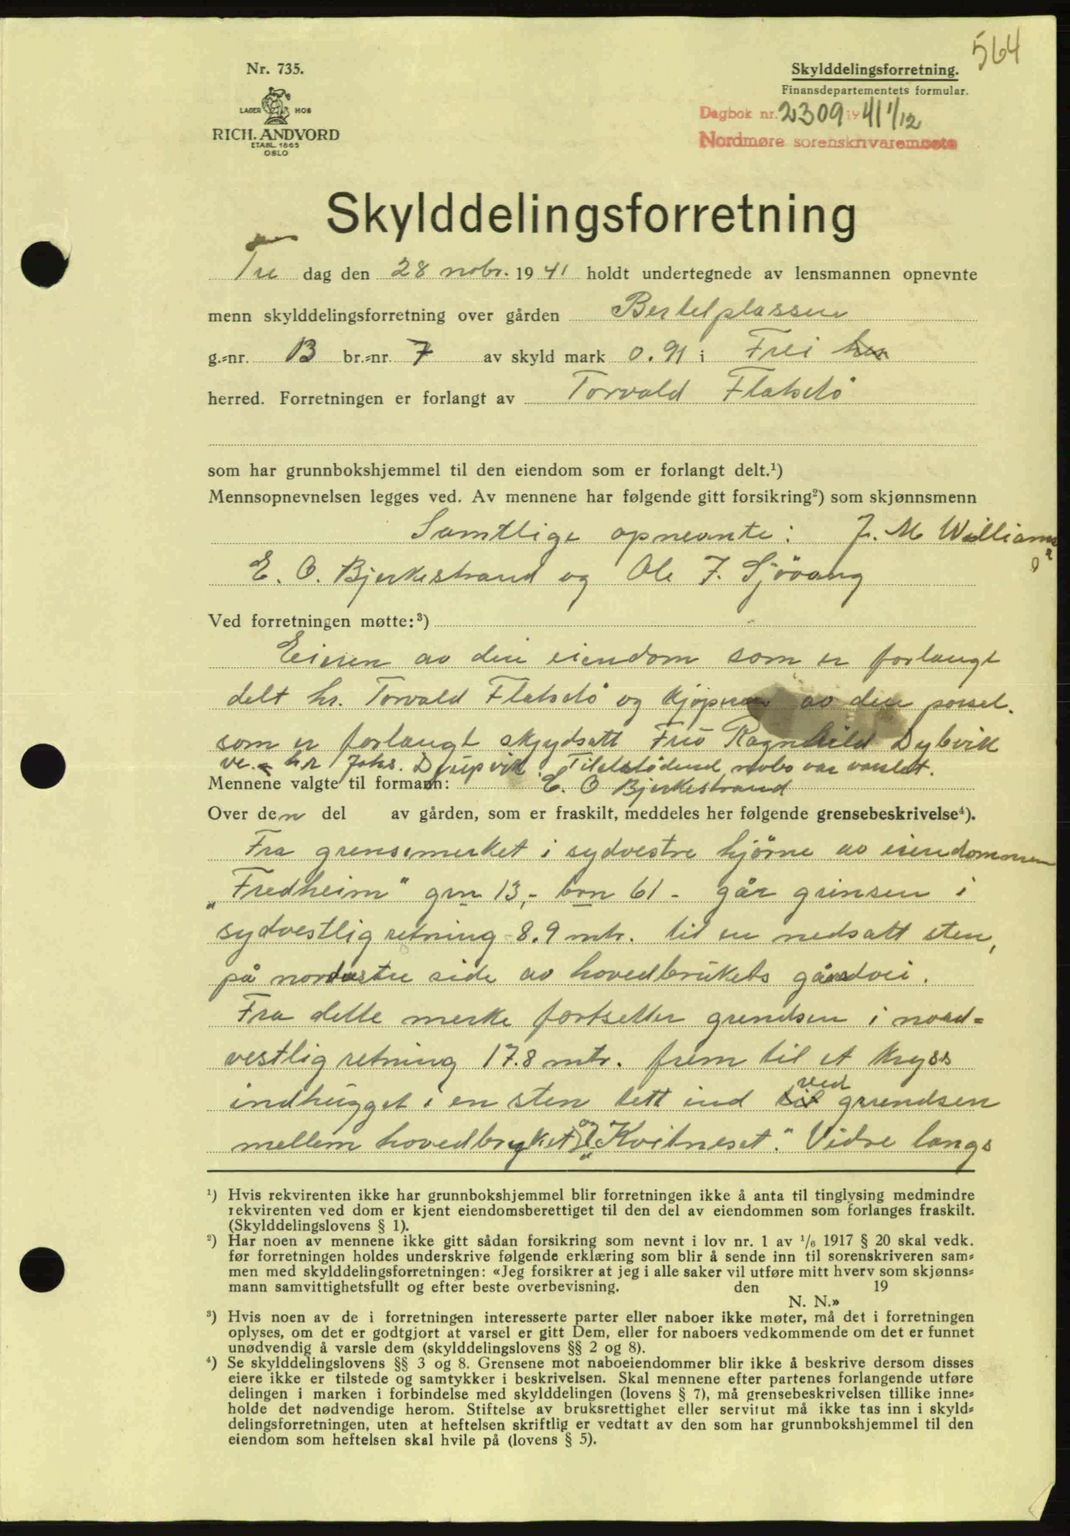 564
Nr. 735.
LAGER HOS
RICH. ANDVORD
ETABL. 1865
OSLO
Skylddelingsforretning.
Finansdepartementets formular.
Dagbok nr. 2309 1941 1/12
Nordmøre sorenskrivarembete
Skylddelingsforretning
Fre dag den 28 nobr. 1941 holdt undertegnede av lensmannen opnevnte
menn skylddelingsforretning over gården Bertelplassen
g.=nr. 13 br.=nr. 7 av skyld mark 0.91 i Frei
herred. Forretningen er forlangt av Torvald Flatsetø
som har grunnbokshjemmel til den eiendom som er forlangt delt.¹)
Mennsopnevnelsen legges ved. Av mennene har følgende gitt forsikring²) som skjønnsmenn
Samtlige opnevnte: J. M. Williams
E. O. Bjerkestrand og Ole J. Sjövang
Ved forretningen møtte:³)
Eieren av den eiendom som er forlangt
delt hr. Torvald Flatsetö og kjöperen av den parsel.
som er forlangt skyldsatt Frö Ragnhild Dybvik
ve. hr Johs. Dybvik. Tilstötend nabo var varslet.
Mennene valgte til formann: E. O Bjerkestrand
Over den del av gården, som er fraskilt, meddeles her følgende grensebeskrivelse⁴).
Fra grensemerket i sydvestre hjörne av eiendommen
„Fredheim" grn 13,- brn 61 - går grensen i
sydvestlig retning 8.9 mtr. til en nedsatt sten,
på nordöstre side av hovedbrukets gårdsvei.
Fra dette merke fortsetter grendsen i nord=
vestlig retning 17.8 mtr. frem til et kryss
indhugget i en sten tett ind ved grendsen
mellem hovedbryket og „Kvitneset". Vidre langs
¹) Hvis rekvirenten ikke har grunnbokshjemmel blir forretningen ikke å anta til tinglysing medmindre
rekvirenten ved dom er kjent eiendomsberettiget til den del av eiendommen som forlanges fraskilt.
(Skylddelingslovens § 1).
²) Har noen av mennene ikke gitt sådan forsikring som nevnt i lov nr. 1 av ¹/₆ 1917 § 20 skal vedk.
før forretningen holdes underskrive følgende erklæring som blir å sende inn til sorenskriveren sam=
men med skylddelingsforretningen: «Jeg forsikrer at jeg i alle saker vil utføre mitt hverv som skjønns=
mann samvittighetsfullt og efter beste overbevisning. den 19
N. N.»
³) Hvis noen av de i forretningen interesserte parter eller naboer ikke møter, må det i forretningen
oplyses, om det er godtgjort at varsel er gitt Dem, eller for naboers vedkommende om det er funnet
unødvendig å varsle dem (skylddelingslovens §§ 2 og 8).
⁴) Se skylddelingslovens §§ 3 og 8. Grensene mot naboeiendommer blir ikke å beskrive dersom disses
eiere ikke er tilstede og samtykker i beskrivelsen. Skal mennene efter partenes forlangende utføre
delingen i marken i forbindelse med skylddelingen (lovens § 7), må grensebeskrivelsen tillike inne=
holde det nødvendige herom. Stiftelse av bruksrettighet eller servitut må ikke tas inn i skyld=
delingsforretningen, uten at heftelsen skriftlig er vedtatt av den som har grunnbokshjemmel til den
eiendom som heftelsen skal hvile på (lovens § 5).